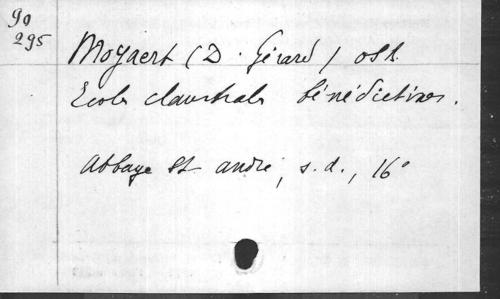 90
295
Moyaert (D. Gérard) osb.
Ecoles claustrales bénédictines.
Abbaye St andré, s.d., 16°